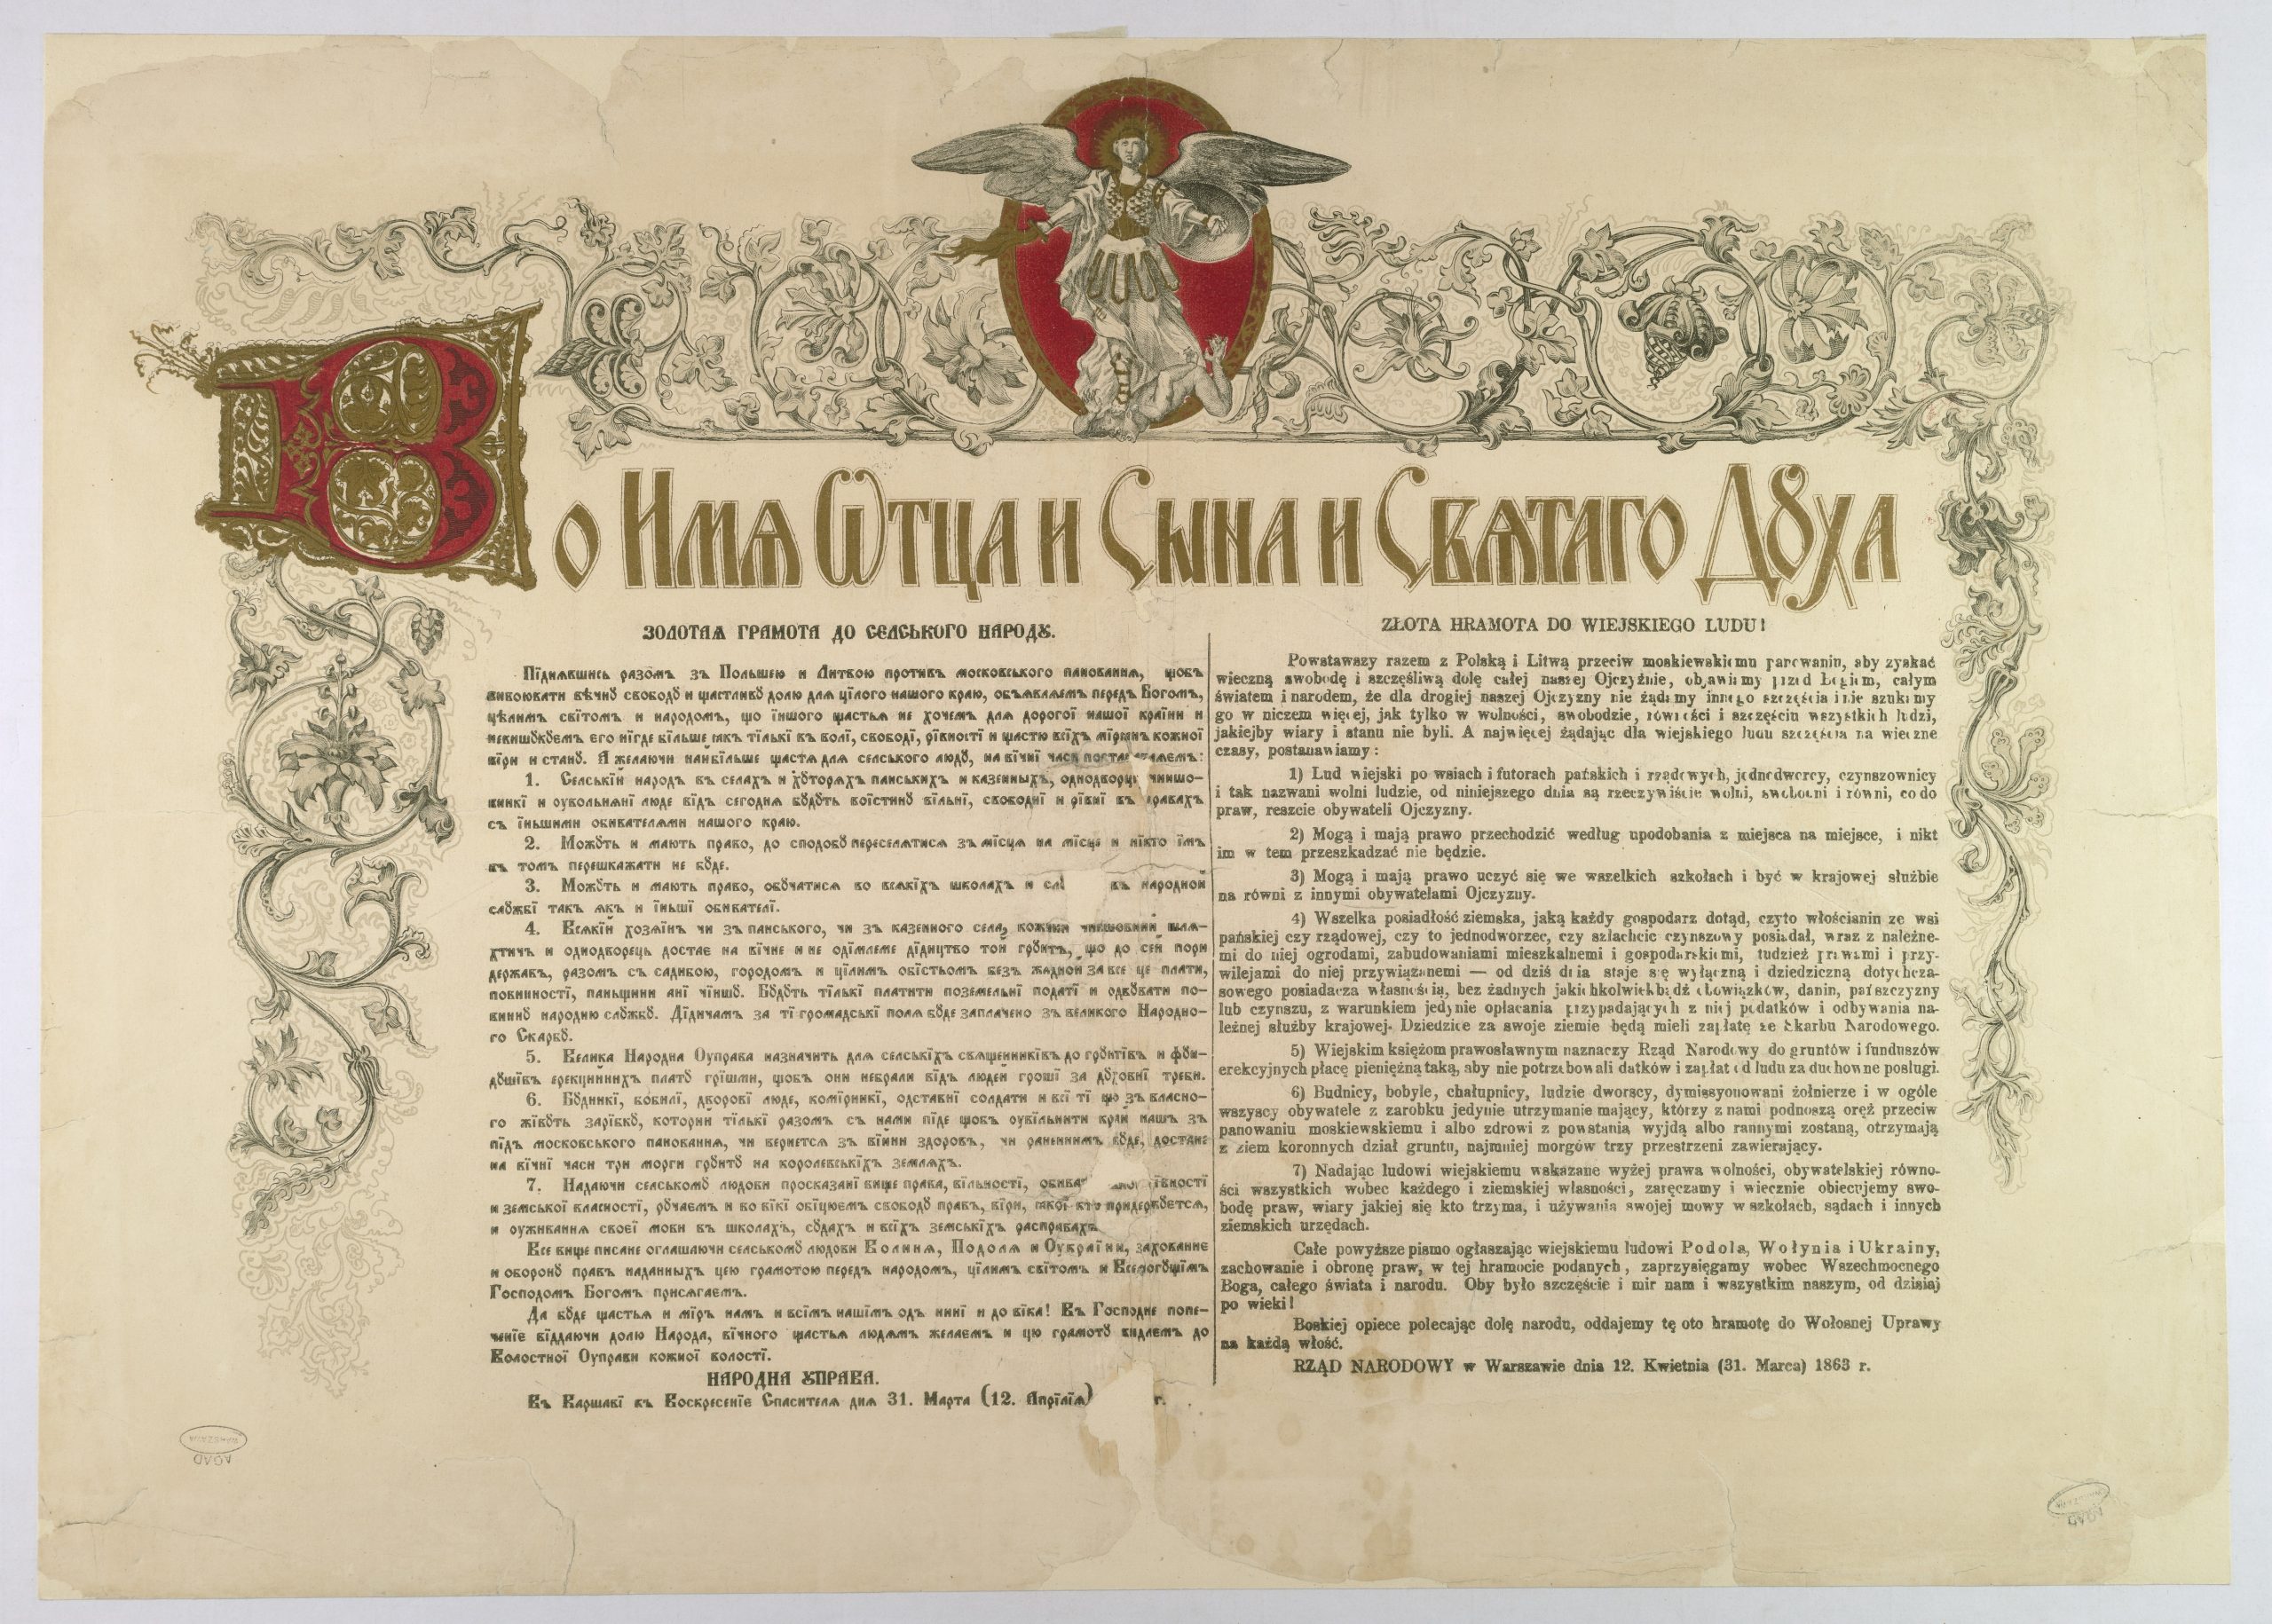 Во Имѧ Ѿтца и Сына и Свѧтаго Дꙋха
ЗОЛОТАЯ ГРАМОТА ДО СЕЛСЬКОГО НАРОДꙊ.
Підиявшись разом зъ Польшею и Литвою противъ московського пановання, щобъ
вивоювати вѣчнꙋ свободꙋ и щастливꙋ долю для цїлого нашого краю, объявляемъ передъ Богомъ,
цѣлимъ світомъ и народомъ, що їншого щастья не хочемъ для дорогої нашої країни и
невишꙋкꙋемъ его нїгде більше якъ тїлькі въ волї, свободї, рївностї и щастю всїхъ мїрянъ кожної
віри и станꙋ. А желаючи найбільше щастя для селського людꙋ, на вічнї часи
1. Селський народъ въ селахъ и хꙋторяхъ панськихъ и казенныхъ, однодворцї чиншо-
викї и оувольнянї люде відъ сегодня бꙋдꙋть воїстинꙋ вільнї, свободнї и рівнї въ правахъ
съ їньшими обивателями нашого краю.
2. Можꙋть и мають право, до сподобꙋ переселятися зъ місця на місце и нїкто їмъ
въ томъ перешкажати не бꙋде.
3. Можꙋть и мають право, обꙋчатися во всякїхъ школахъ и въ народной
слꙋжбї такъ якъ и їньшї обивателї.
4. Всякїй хозяїнъ чи зъ панського, чи зъ казенного села, кожний чиншовий шля-
хтичъ и однодворець достає на вічне и не одїмлеме дїдицтво той грꙋнтъ, що до сей пори
державъ, разомъ съ садибою, городомъ и цїлимъ обїстьомъ безъ жадной за все це плати,
повинності, паньщини анї чїншꙋ. Бꙋдꙋть тїлькі платити поземельнї податї и одбꙋвати по-
виннꙋ народню слꙋжбꙋ. Дїдичамъ за тї громадські поля бꙋде заплачено зъ великого Народно-
го Скарбꙋ.
5. Велика Народна Оуправа назначить для селськїхъ священниківъ до грꙋнтівъ и фꙋн-
дꙋшівъ ерекцийнихъ платꙋ грїшми, щобъ они небрали відъ людей грошї за дꙋховнї треби.
6. Бꙋдникї, бобилї, дворові люде, комірникї, одставнї солдати и всї тї що зъ власно-
го жївꙋть зарїбкꙋ, которий тїлькї разомъ съ нами піде щобъ оувільнити край нашъ зъ
підъ московського пановання, чи вернется зъ війни здоровъ, чи раненнимъ бꙋде, достане
на вічнї часи три морги грꙋнтꙋ на королевськїхъ земляхъ.
7. Надаючи селськомꙋ людови просказанї вище права, вільності,
и земської власності, рꙋчаемъ и во вікї обїцюемъ свободꙋ правъ, віри, якої кто придержꙋется,
и оуживання своєї мови въ школахъ, сꙋдахъ и всїхъ земськїхъ расправахъ
Все више писане оглашаючи селськомꙋ людови Волиня, Подоля и Оукраїни, заховане
и оборонꙋ правъ наданныхъ цею грамотою передъ народомъ, цїлимъ світомъ и Всемогꙋщїмъ
Господомъ Богомъ присягаемъ.
Да бꙋде щастья и мїръ намъ и всїмъ нашїмъ одъ нинї и до віка! Въ Господне попе-
ченїе віддаючи долю Народа, вічного щастья людямъ желаемъ и цю грамотꙋ видаемъ до
Волостної Оуправи кожної волостї.
НАРОДНА ꙊПРАВА.
Въ Варшаві въ Воскресенїе Спасителя дня 31. Марта (12. Апрїлїя) г.
ZŁOTA HRAMOTA DO WIEJSKIEGO LUDU!
Powstawszy razem z Polską i Litwą przeciw moskiewskiemu panowaniu, aby zyskać
wieczną swobodę i szczęśliwą dolę całej naszej Ojczyźnie, objawiamy przed Bogiem, całym
światem i narodem, że dla drogiej naszej Ojczyzny nie żądamy innego szczęścia i nie szukamy
go w niczem więcej, jak tylko w wolności, swobodzie, równości i szczęściu wszystkich ludzi,
jakiejby wiary i stanu nie byli. A najwięcej żądając dla wiejskiego ludu szczęścia na wieczne
czasy, postanawiamy:
1) Lud wiejski po wsiach i futorach pańskich i rządowych, jednodworcy, czynszownicy
i tak nazwani wolni ludzie, od niniejszego dnia są rzeczywiście wolni, swobodni i równi, co do
praw, reszcie obywateli Ojczyzny.
2) Mogą i mają prawo przechodzić według upodobania z miejsca na miejsce, i nikt
im w tem przeszkadzać nie będzie.
3) Mogą i mają prawo uczyć się we wszelkich szkołach i być w krajowej służbie
na równi z innymi obywatelami Ojczyzny.
4) Wszelka posiadłość ziemska, jaką każdy gospodarz dotąd, czyto włościanin ze wsi
pańskiej czy rządowej, czy to jednodworzec, czy szlachcic czynszowy posiadał, wraz z należne-
mi do niej ogrodami, zabudowaniami mieszkalnemi i gospodarskiemi, tudzież prawami i przy-
wilejami do niej przywiązanemi — od dziś dnia staje się wyłączną i dziedziczną dotychcza-
sowego posiadacza własnością, bez żadnych jakichkolwiekbądź obowiązków, danin, pańszczyzny
lub czynszu, z warunkiem jedynie opłacania przypadających z niej podatków i odbywania na-
leżnej służby krajowej. Dziedzice za swoje ziemie będą mieli zapłatę ze Skarbu Narodowego.
5) Wiejskim księżom prawosławnym naznaczy Rząd Narodowy do gruntów i funduszów
erekcyjnych płacę pieniężną taką, aby nie potrzebowali datków i zapłat od ludu za duchowne posługi.
6) Budnicy, bobyle, chałupnicy, ludzie dworscy, dymissyonowani żołnierze i w ogóle
wszyscy obywatele z zarobku jedynie utrzymanie mający, którzy z nami podnoszą oręż przeciw
panowaniu moskiewskiemu i albo zdrowi z powstania wyjdą albo rannymi zostaną, otrzymają
z ziem koronnych dział gruntu, najmniej morgów trzy przestrzeni zawierający.
7) Nadając ludowi wiejskiemu wskazane wyżej prawa wolności, obywatelskiej równo-
ści wszystkich wobec każdego i ziemskiej własności, zaręczamy i wiecznie obiecujemy swo-
bodę praw, wiary jakiej się kto trzyma, i używania swojej mowy w szkołach, sądach i innych
ziemskich urzędach.
Całe powyższe pismo ogłaszając wiejskiemu ludowi Podola, Wołynia i Ukrainy,
zachowanie i obronę praw, w tej hramocie podanych, zaprzysięgamy wobec Wszechmocnego
Boga, całego świata i narodu. Oby było szczęście i mir nam i wszystkim naszym, od dzisiaj
po wieki!
Boskiej opiece polecając dolę narodu, oddajemy tę oto hramotę do Wołosnej Uprawy
na każdą włość.
RZĄD NARODOWY w Warszawie dnia 12. Kwietnia (31. Marca) 1863 r.
WARSZAWA
AGAD
AGAD